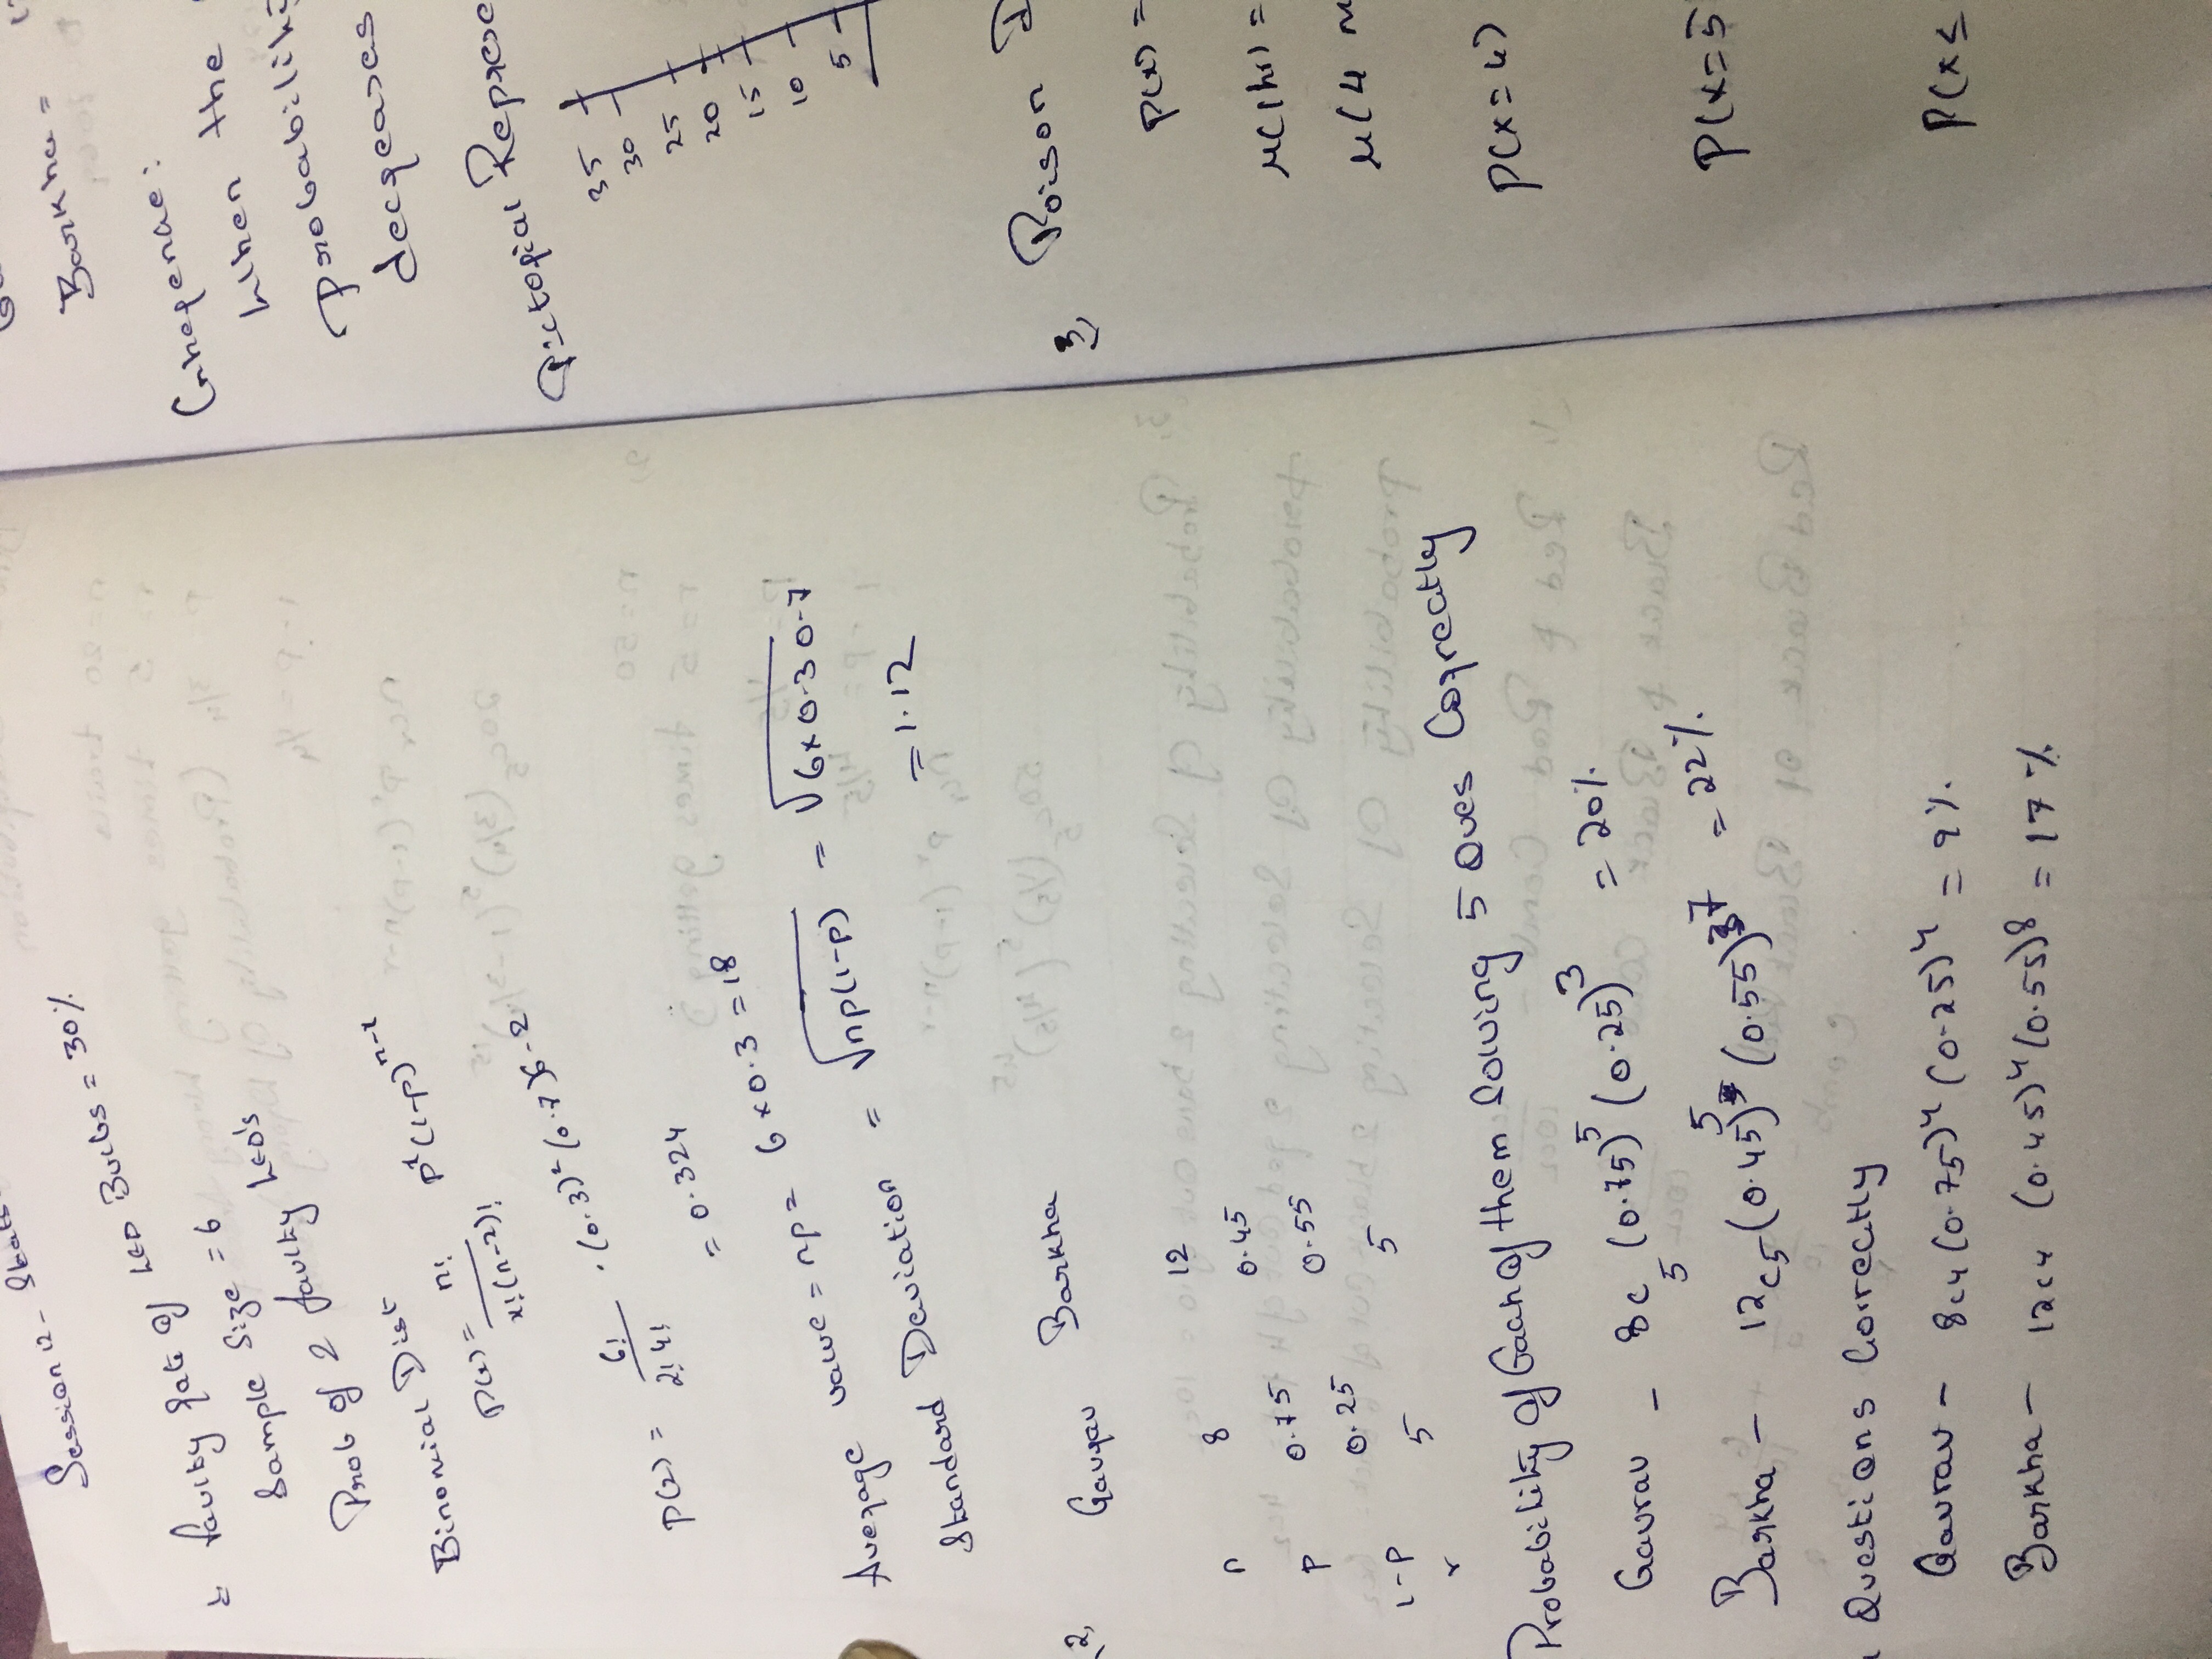 Session 12 - Stats
1. Faulty Rate of LED Bulbs = 30%
Sample Size = 6
Prob of 2 faulty LED's
Binomial Dist
P(x) = n! / x!(n-2)! p^x (1-p)^n-x
P(2) = 6! / 2! 4! . (0.3)^2 (0.7)^6-2
= 0.324
Average value = np = 6 x 0.3 = 18
Standard Daviation = √np(1-p) = √6x0.3 0.7
= 1.12
2, Gaurav Barkha
n 8 12
p 0.75 0.45
1-p 0.25 0.55
r 5 5
Probability Of Each Of them Solving 5 Ques Correatly
Gaurav - 8c5 (0.75)^5 (0.25)^3 = 20%
Barkha - 12c5 (0.45)^5 (0.55)^7 = 22%
Questions Correatly
Gaurav - 8c4 (0.75)^4 (0.25)^4 = 9%
Barkha - 12c4 (0.45)^4 (0.55)^8 = 17%
Barkha =
When the
Probability
decreases
Pictorial Represe
35
30
25
20
15
10
5
3, Poison D
P(x) =
μ(1hr) =
μ(4 m
P(x=4)
P(x=5
P(x≤